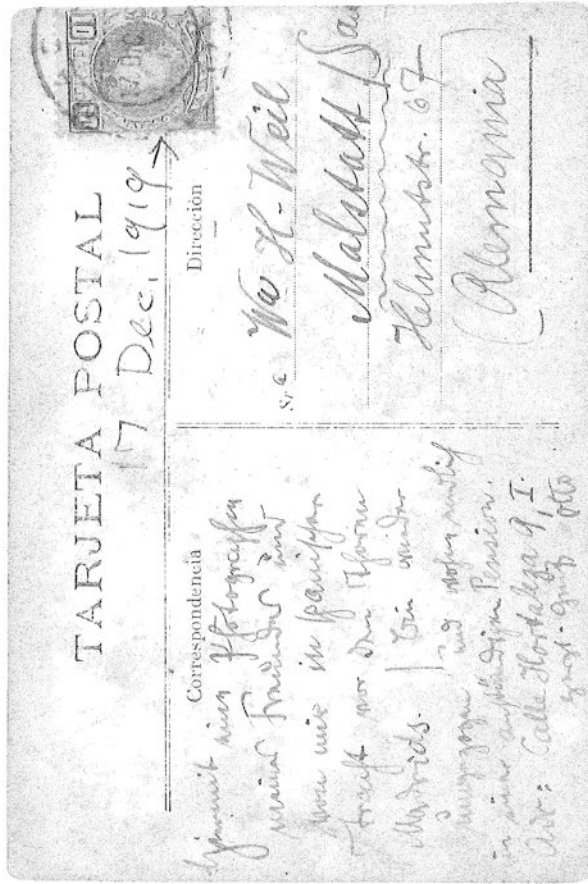 TARJETA POSTAL
17 Dec, 1919
Correspondencia
Hiermit eine Photographie
meiner Freunde und
von mir in spanischer
Tracht vor den Thoren
Madrids. Bin wieder
umgezogen und wohne endlich
in einer anständigen Pension.
Adr: Calle Hortaleza 9, I.
Gruß Otto
Dirección
Sr a Ww H-Weil
Malstatt
Helmutstr. 67
(Alemania)